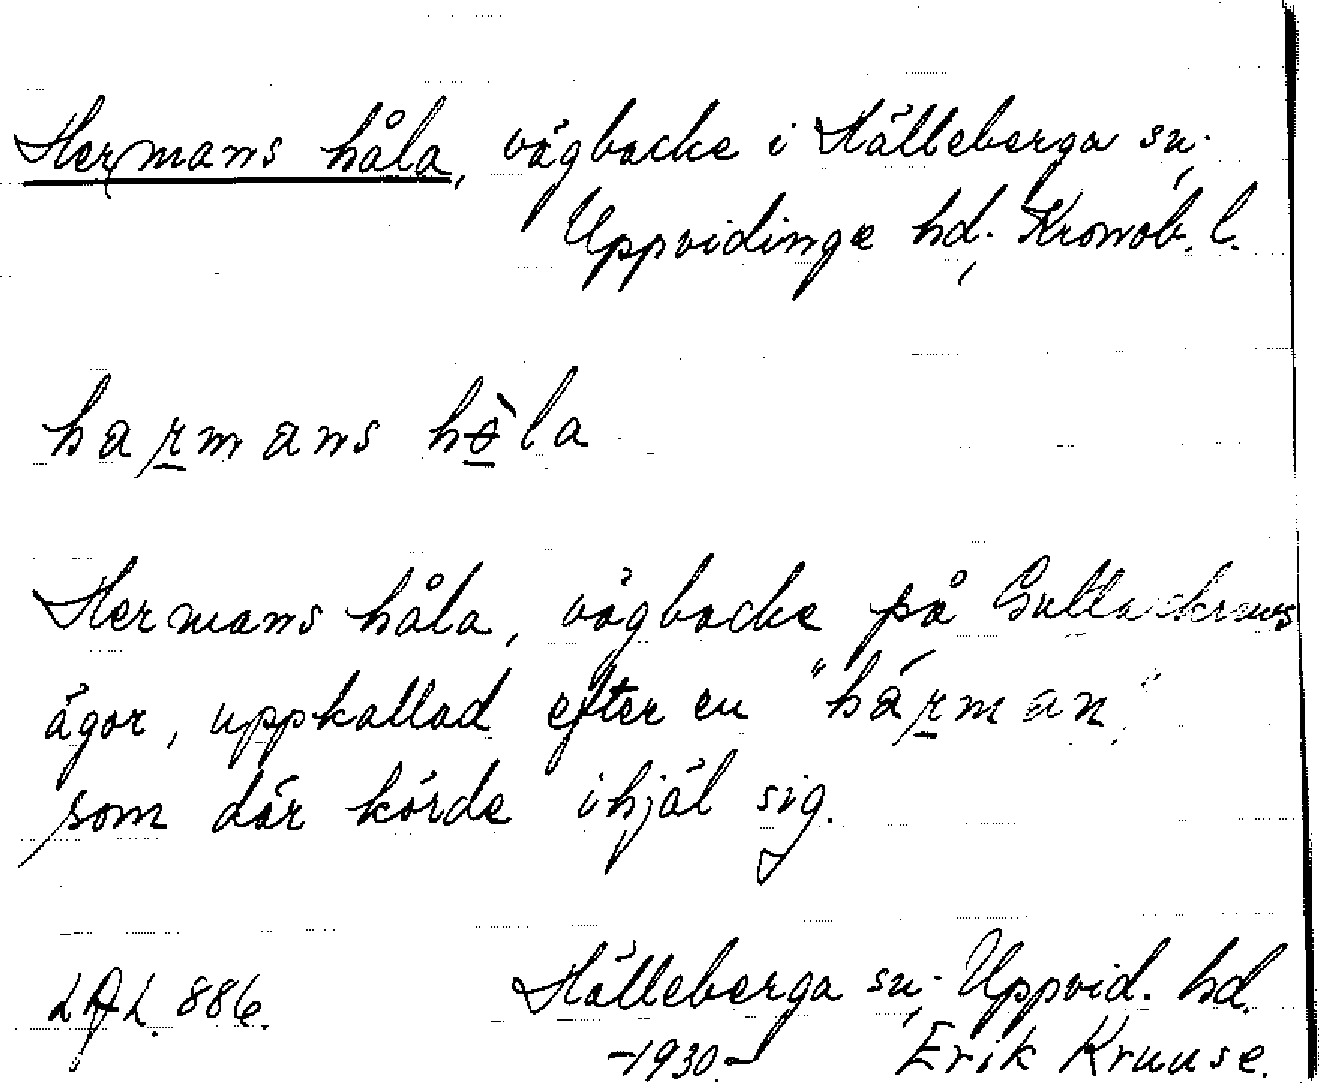 Hermans håla, vägbacke i Hälleberga sn;
Uppvidinge hd. Kronob. l.
harmans hòla
Hermans håla, vägbacke på Gullackraws
ägor, uppkallad efter en "hárman"
som där körde ihjäl sig.
886.
Hälleberga sn; Uppvid. hd.
-1930- Erik Kruuse.